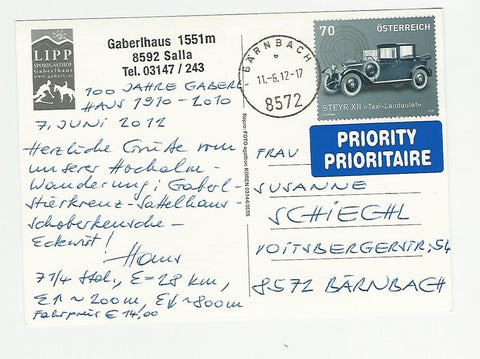 LIPP
SPORTGASTHOF
Gaberlhaus
www.gaberl.at
Gaberlhaus 1551m
8592 Salla
Tel. 03147 / 243
100 JAHRE GABERL
HAUS 1910-2010
7. JUNI 2012
Herzliche Grüße von
unserer Hochalm-
Wanderung: Gaberl-
Stierkreuz-Sattelhaus-
Eckwirt!
Hans
7 1/4 Std., E=28 km,
E↑~200m, E↓~800m
Fahrpreis € 14,00
BÄRNBACH
11.-6.12-17
8572
70 ÖSTERREICH
STEYR XII «Taxi-Landaulet»
PRIORITY
PRIORITAIRE
FRAU
SUSANNE
SCHIEGHL
VOITSBERGERSTR. 54
8572 BÄRNBACH